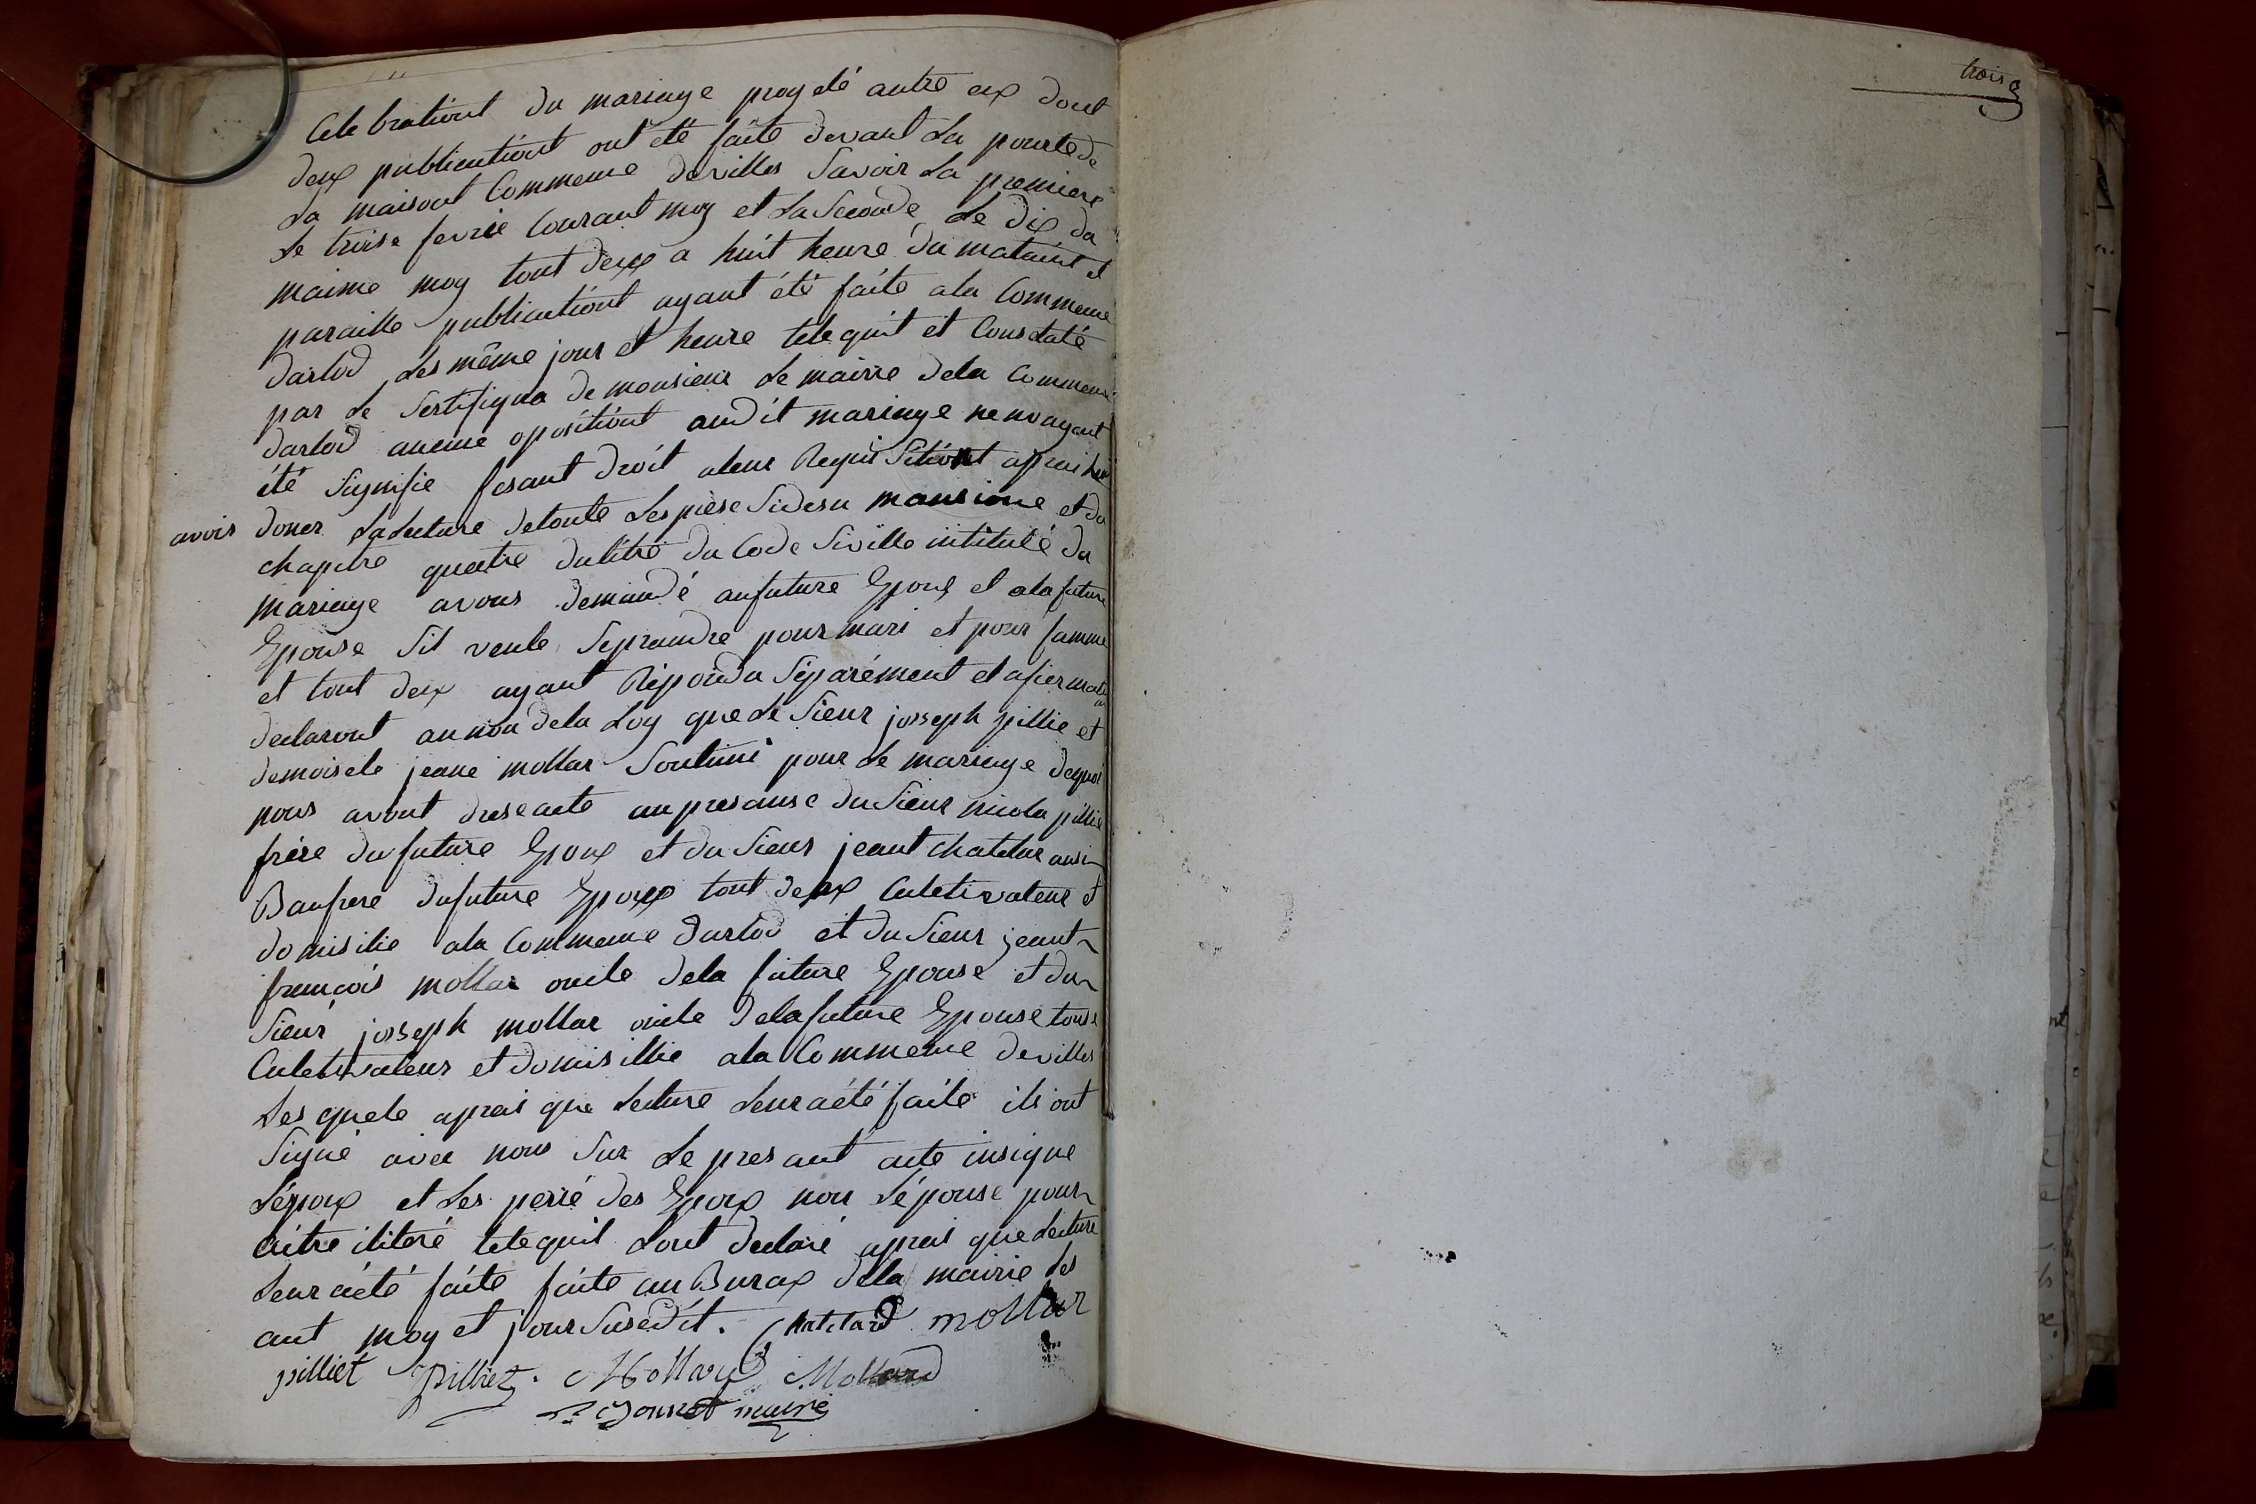 Celebrationt du mariage progeté antre eux dont
deux publicationt ont été faite devant la pourte de
la maisont Commeune de villes Savoir la premiere
le troise fevrie Courant moy et la Seconde le dix du
maime moy tout deux a huit heure du mataint et
paraille publicationt ayant été faite ala Commeune
darlod les même jour et heure tele quit et Constaté
par le Sertifiqua de monsieur le mairre dela Commeune
darlod aucune opositiont audit mariage ne nou ayant
été Signifie fesant droit aleur Requi Sitiont aprai
avoir doner la lecture de toute les pièse Sidesu mansione et du
chapitre quatre du titre du Code Siville intitulé du
mariage avons demandé au future Epoux et ala future
Epouse Sil veule Seprandre pour mari et pour famme
et tout deux ayant Répondu Séparément et afiermati
declaront au non dela Loy que le Sieur joseph pillie et
demoisele jeane mollar Sont uni pour le mariage dequoi
nous avont drese acte an presanse du Sieur nicola pillie
frère du future Epoux et du Sieur jeant chatelar ausi
Baufrere du future Epoux tout deux Culetivateur et
domisilie ala Commeune Darlod et du Sieur jeant
françois mollar oncle dela future Epouse et du
Sieur joseph mollar oncle dela future Epouse tous
Culetivateur et domisillie ala Commeune de villes
Les quele aprai que lecture leur a été faite ils ont
Signé avec nous Sur le presant acte insigne
l'époux et les perre des Epoux non l'épouse pour
aitre ilitéré tele quil lont declaré aprai que lecture
leur a été faite faite au Buraux dela mairie les
ant moy et jour Susedit. Chatelard mollar
pilliet Pilliet. Mollard Mollard
Jousset maire
trois